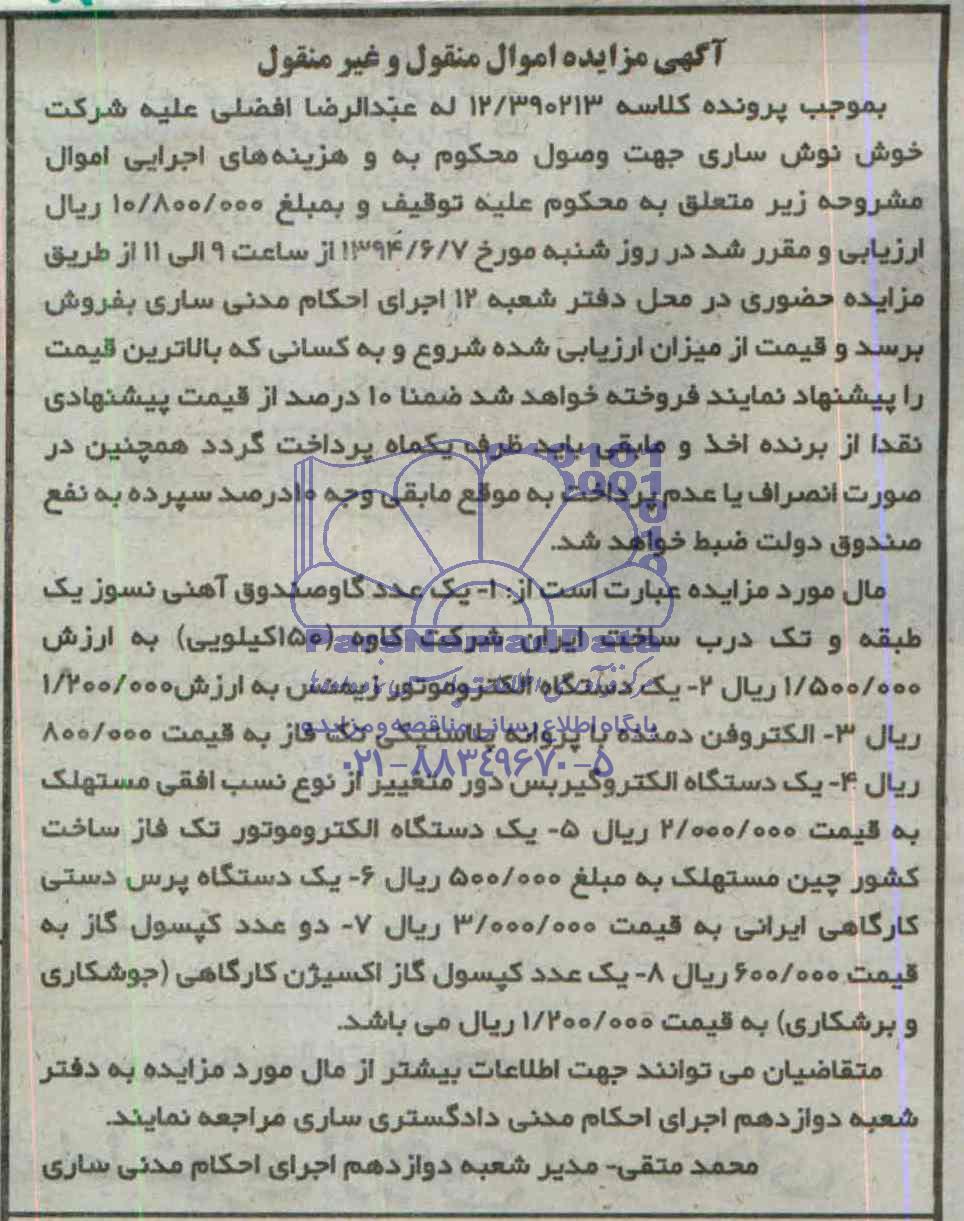 آگهی مزایده اموال منقول و غیر منقول
بموجب پرونده کلاسه ۱۲/۳۹۰۲۱۳ له عبدالرضا افضلی علیه شرکت
خوش نوش ساری جهت وصول محکوم به و هزینه‌های اجرایی اموال
مشروحه زیر متعلق به محکوم علیه توقیف و بمبلغ ۱۰/۸۰۰/۰۰۰ ریال
ارزیابی و مقرر شد در روز شنبه مورخ ۱۳۹۴/۶/۷ از ساعت ۹ الی ۱۱ از طریق
مزایده حضوری در محل دفتر شعبه ۱۲ اجرای احکام مدنی ساری بفروش
برسد و قیمت از میزان ارزیابی شده شروع و به کسانی که بالاترین قیمت
را پیشنهاد نمایند فروخته خواهد شد ضمنا ۱۰ درصد از قیمت پیشنهادی
نقدا از برنده اخذ و مابقی باید ظرف یکماه پرداخت گردد همچنین در
صورت انصراف یا عدم پرداخت به موقع مابقی وجه ۱۰درصد سپرده به نفع
صندوق دولت ضبط خواهد شد.
مال مورد مزایده عبارت است از: ۱- یک عدد گاوصندوق آهنی نسوز یک
طبقه و تک درب ساخت ایران شرکت کاوه (۱۵۰کیلویی) به ارزش
ParsNamadData
۱/۵۰۰/۰۰۰ ریال ۲- یک دستگاه الکتروموتور زیمنس به ارزش۱/۲۰۰/۰۰۰
ریال ۳- الکتروفن دمنده با پروانه پلاستیکی تک فاز به قیمت ۸۰۰/۰۰۰
پایگاه اطلاع رسانی مناقصه و مزایده
۰۲۱-۸۸۳۴۹۶۷۰-۵
ریال ۴- یک دستگاه الکتروگیربس دور متغییر از نوع نسب افقی مستهلک
به قیمت ۲/۰۰۰/۰۰۰ ریال ۵- یک دستگاه الکتروموتور تک فاز ساخت
کشور چین مستهلک به مبلغ ۵۰۰/۰۰۰ ریال ۶- یک دستگاه پرس دستی
کارگاهی ایرانی به قیمت ۳/۰۰۰/۰۰۰ ریال ۷- دو عدد کپسول گاز به
قیمت ۶۰۰/۰۰۰ ریال ۸- یک عدد کپسول گاز اکسیژن کارگاهی (جوشکاری
و برشکاری) به قیمت ۱/۲۰۰/۰۰۰ ریال می باشد.
متقاضیان می توانند جهت اطلاعات بیشتر از مال مورد مزایده به دفتر
شعبه دوازدهم اجرای احکام مدنی دادگستری ساری مراجعه نمایند.
محمد متقی- مدیر شعبه دوازدهم اجرای احکام مدنی ساری